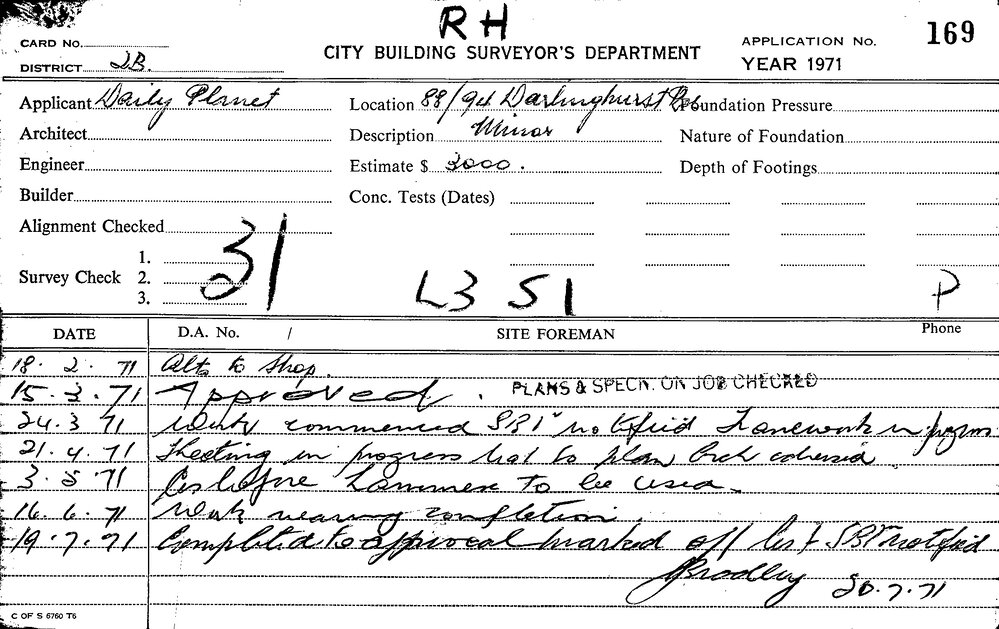 RH
CARD No.
CITY BUILDING SURVEYOR'S DEPARTMENT
APPLICATION No. 169
DISTRICT 2B.
YEAR 1971
Applicant Daily Planet
Location 88/94 Darlinghurst Rd
Foundation Pressure
Architect
Description Minor
Nature of Foundation
Engineer
Estimate $ 3000.
Depth of Footings
Builder
Conc. Tests (Dates)
Alignment Checked
Survey Check 1. 2. 3.
31
L3 S1
P
DATE D.A. No. / SITE FOREMAN Phone
18. 2. 71 Alts to shop.
15. 3. 71 Approved. PLANS & SPECN. ON JOB CHECKED
24. 3. 71 Work commenced SBI notified Framework in progress
21. 4. 71 Sheeting in progress not to plan Arch advised
3. 5. 71 to be used.
16. 6. 71 Work nearing completion.
19. 7. 71 Completed to approval marked off list SBI notified
Bradley 20.7.71
C OF S 6760 T6